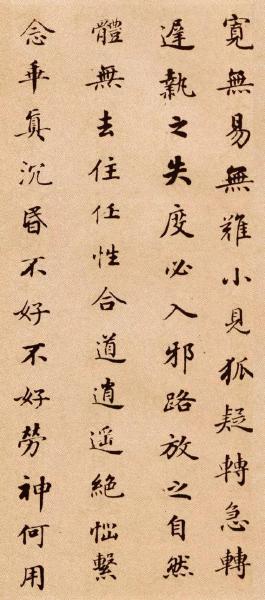 寬無易無難小見狐疑轉急轉
遲執之失度必入邪路放之自然
體無去住任性合道逍遥絕惱繫
念乖真沉昏不好不好勞神何用